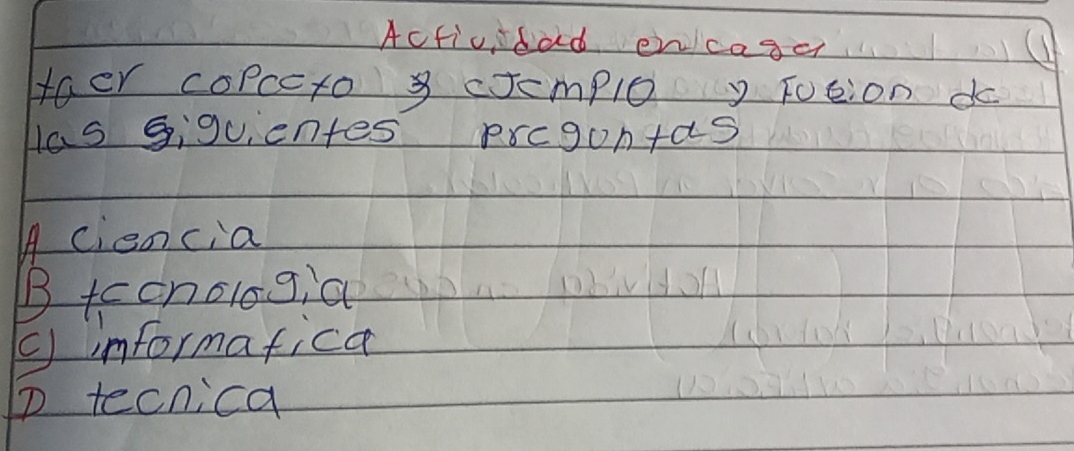 Actividad en casa
taer copccto y ejemplo y fusion de
las siguientes preguntas
A ciencia
B tecnologia
C) informatica
D tecnica